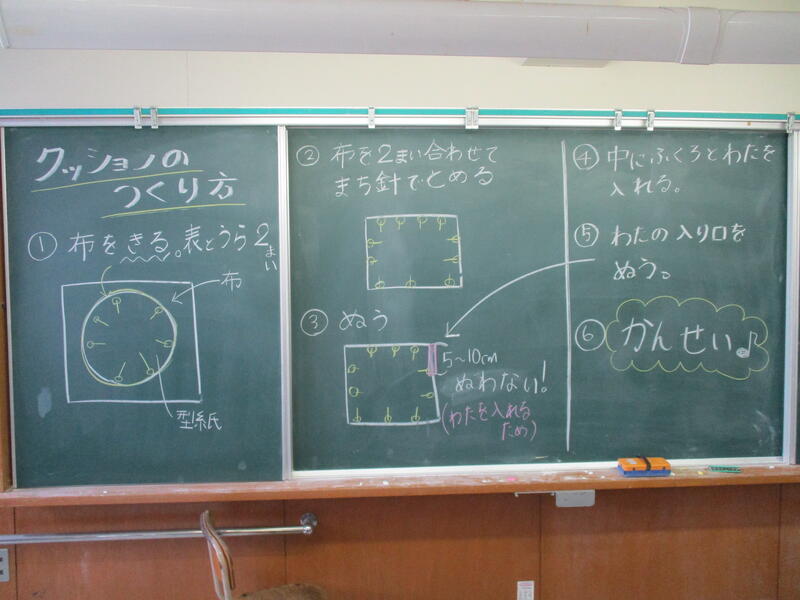 クッションの
つくり方
① 布をきる。表とうら2まい
布
型紙
② 布を2まい合わせて
まち針でとめる
③ ぬう
5~10cm
ぬわない!
(わたを入れる
ため)
④ 中にふくろとわたを
入れる。
⑤ わたの入り口を
ぬう。
⑥ かんせい♪